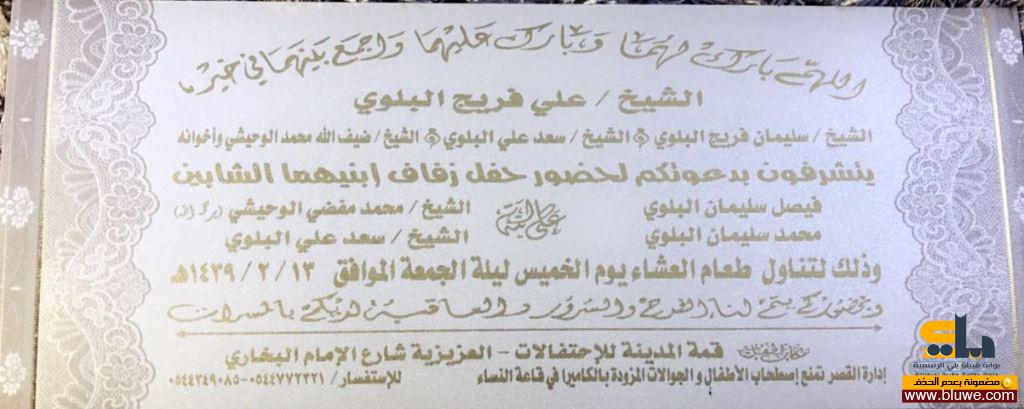 اللهم بارك لهما وبارك عليهما واجمع بينهما في خير
الشيخ / علي فريج البلوي
الشيخ / سليمان فريج البلوي و الشيخ / سعد علي البلوي و الشيخ / ضيف الله محمد الوحيشي وأخوانه
يتشرفون بدعوتكم لحضور حفل زفاف إبنيهما الشابين
فيصل سليمان البلوي على ابنة الشيخ / محمد مفضي الوحيشي (يرحمه الله)
محمد سليمان البلوي الشيخ / سعد علي البلوي
وذلك لتناول طعام العشاء يوم الخميس ليلة الجمعة الموافق ١٣ / ٢ / ١٤٣٩هـ
وبحضوركم يتم لنا الفرح والسرور والعاقبة لديكم بالمسرات
قمة المدينة للإحتفالات - العزيزية شارع الإمام البخاري
إدارة القصر تمنع إصطحاب الأطفال و الجوالات المزودة بالكاميرا في قاعة النساء للإستفسار / ٠٥٤٤٧٧٢٣٢١-٠٥٤٤٣٤٩٠٨٥
بلي
بوابة قبيلة بلي الرسمية
مضمونة بعدم الحذف
www.bluwe.com